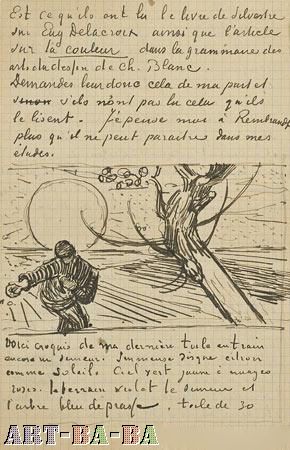 Est ce qu'ils ont lu le livre de Silvestre
sur Eug Delacroix ainsi que l'article
sur la couleur dans la grammaire des
arts du dessin de Ch. Blanc.
Demandes leur donc cela de ma part et
sinon s'ils n'ont pas lu cela qu'ils
le lisent. Je pense moi à Rembrandt
plus qu'il ne peut paraitre dans mes
études.
Voici croquis de ma dernière toile en train
encore un semeur. Immense disque citron
comme soleil. Ciel vert jaune à nuages
roses. le terrain violet le semeur et
l'arbre bleu de prusse. toile de 30
ART-BA-BA